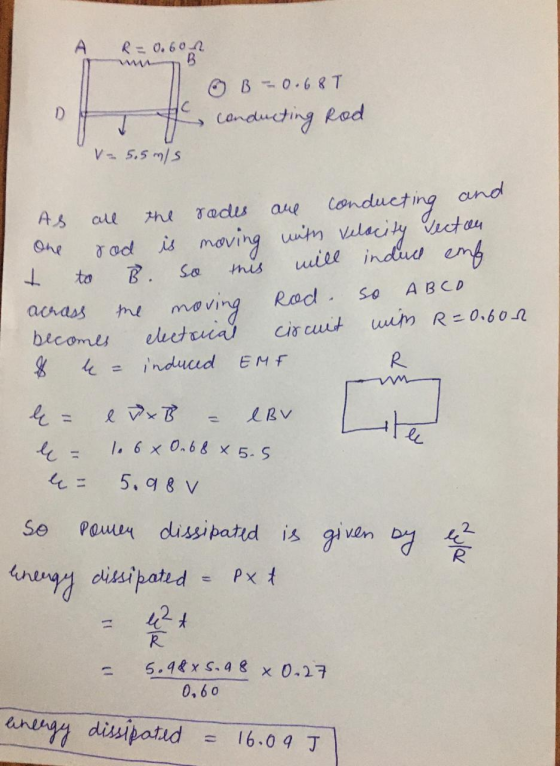 A R = 0.60Ω B
⊙ B = 0.68T
D C → conducting Rod
V = 5.5 m/s
As all the rodes are conducting and
one rod is moving with velocity vector
⊥ to B⃗. So this will induce emf
across the moving Rod. So ABCD
becomes electrical circuit with R = 0.60Ω
& ε = induced EMF
R
ε = l V⃗×B⃗ = lBV
ε
ε = 1.6 × 0.68 × 5.5
ε = 5.98 V
So Power dissipated is given by ε²/R
energy dissipated = P×t
= ε²/R t
= 5.98×5.98/0.60 × 0.27
energy dissipated = 16.09 J